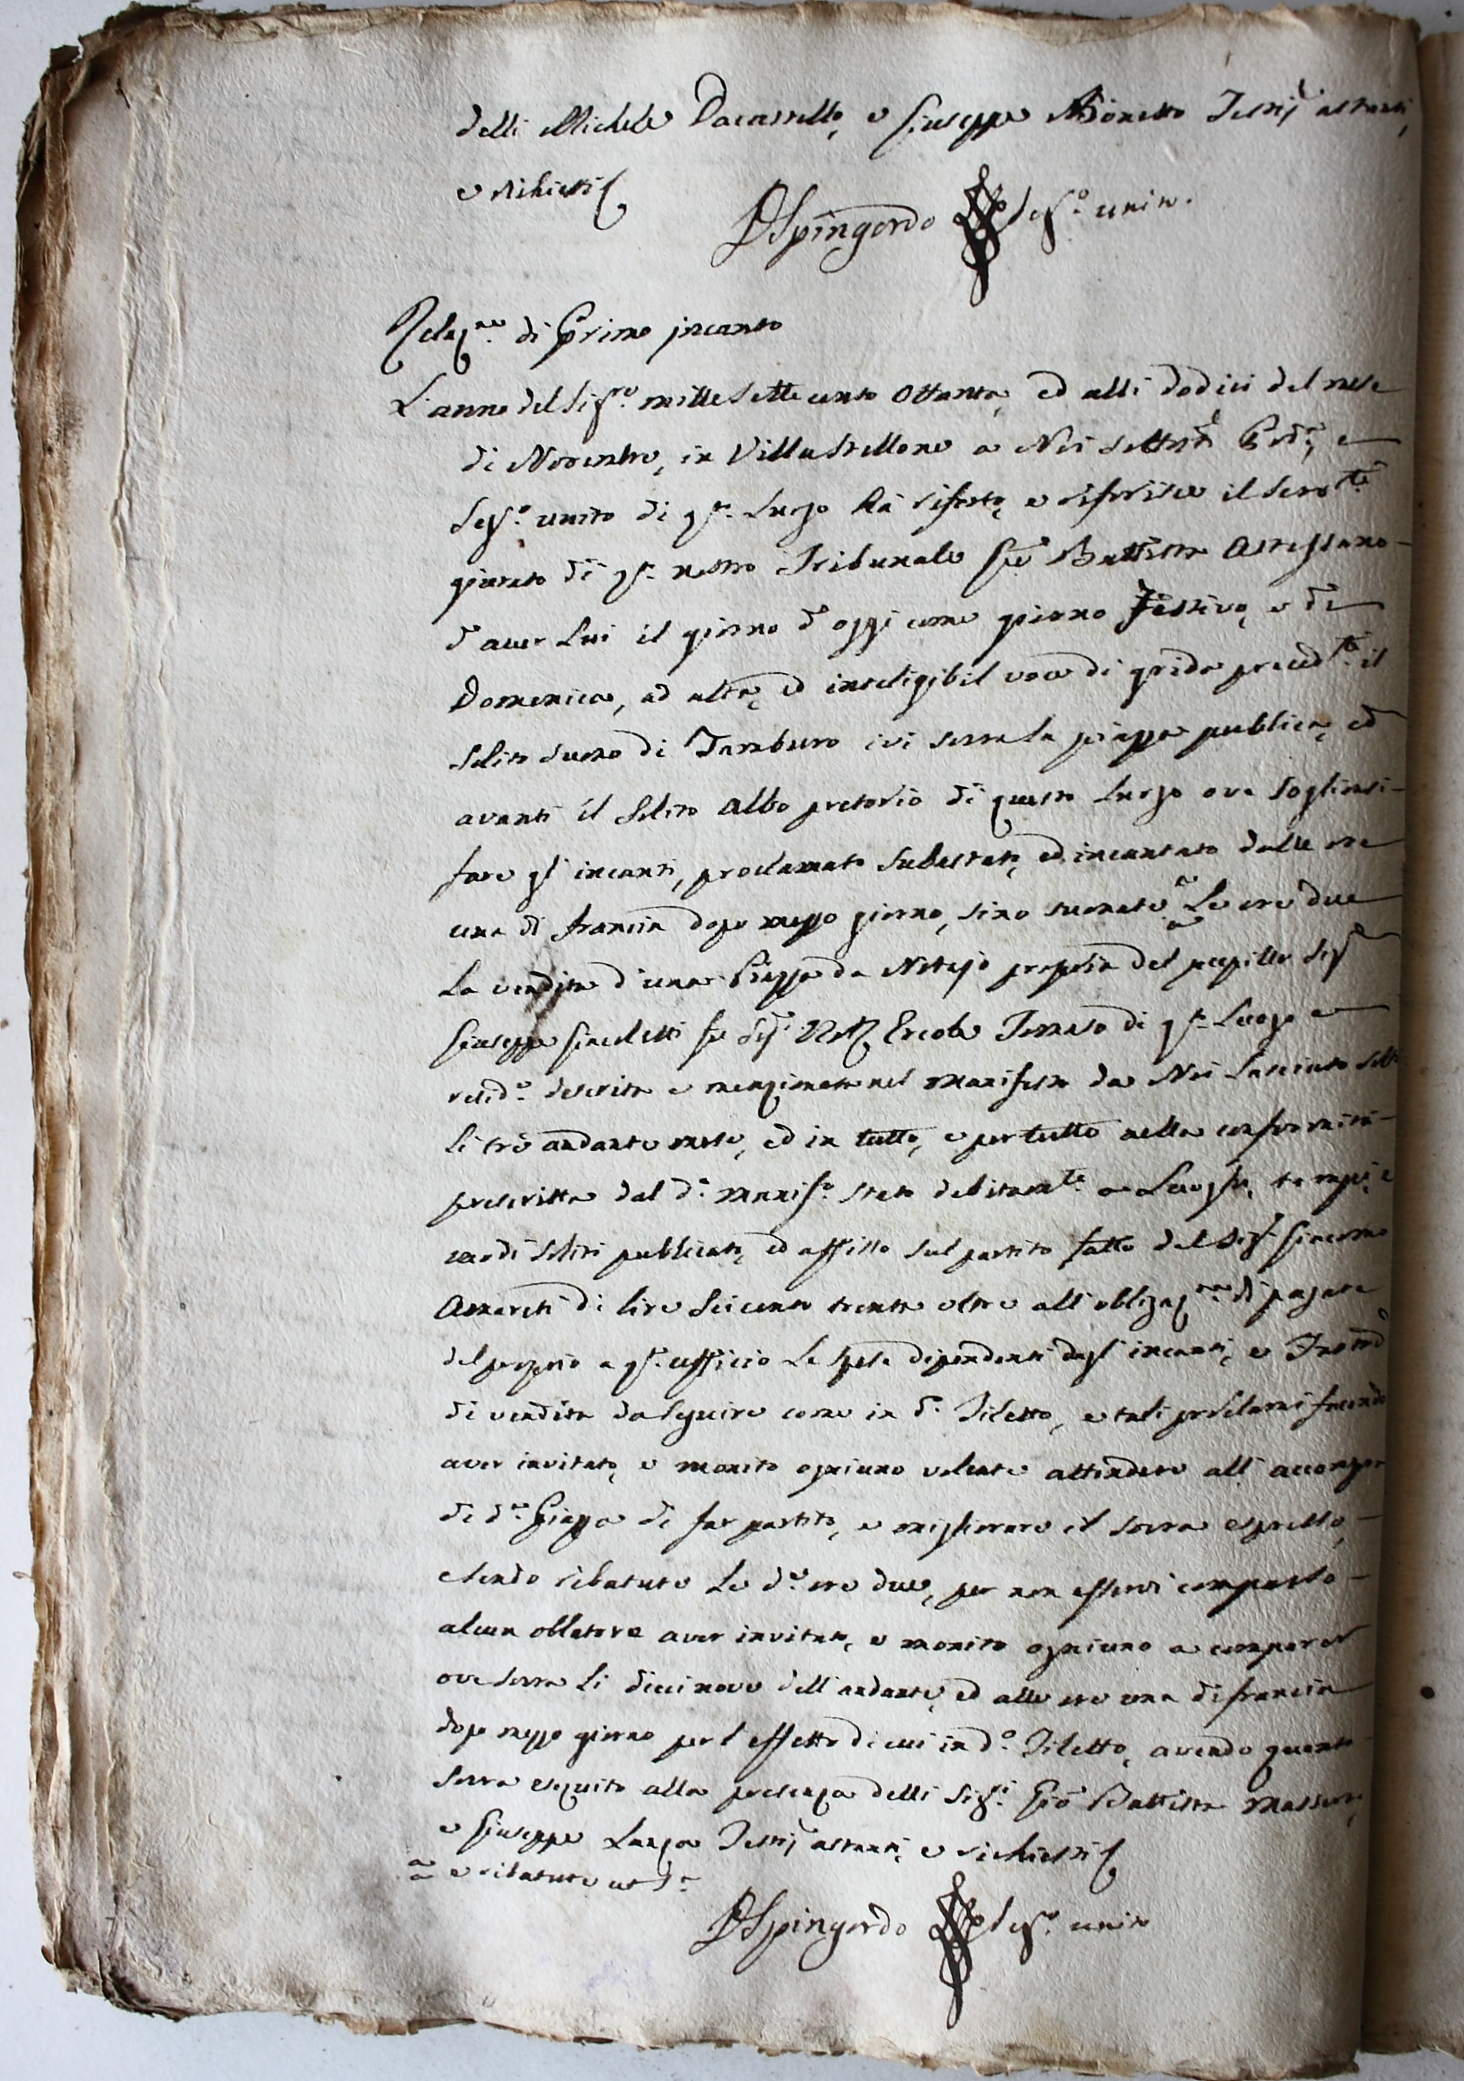 delli Michele Dacasretto, e Giuseppe Bonetto Testij astanti,
e richiesti
Spingardo Seg.o unito.
Relaz.ne di Primo incanto
L'anno del Sig.re mille sette cento ottanta, ed alli dodici del mese
di Novembre, in Villastellone a Noi sottos.to e
Seg.o unito di q.to Luogo hà riferto, e riferisce il serv.te
giurato di q.to nostro Tribunale Gio Battista Astessano
d'aver Lui il giorno d'oggi come giorno festivo, e di
Domenica, ad alta, ed inteligibil voce di grida preced.te il
solito suono di Tamburo ivi sovra la piazza publica, ed
avanti il solito albo pretorio di questo Luogo ove sogliansi
fare gl'incanti, proclamato subastato, ed incantato dalle ore
una di francia dopo mezzo giorno, sino suonate Le ore due
La vendita d'una Piazza da Notajo propria del pupillo Sig.r
Giuseppe Giacoletti fu Sig.r Not.o Ercole Tomaso di q.to Luogo e
resid.e descritta e menzionata nel manifesto da Noi Lasciato sotto
li trè andante mese, ed in tutto, e per tutto nella conformità
prescritta dal d.o manif.o stato debitam.te a Luoghi, tempi, e
modi soliti publicato, ed affisso sul partito fatto dal Sig.r Giacomo
Amereti di lire seicento trenta oltre all'obligaz.ne di pagare
del proprio a q.to ufficio Le spese dipendenti dagl'incanti, e Instrom.to
di vendita da seguire come in d.o Tiletto, e tali proclami facendo
aver invitato, e monito ogniuno volente attendere all'accompra
di d.a Piazza di far partito, e migliorare il sovra espresso,
e sendo ribatute Le d.e ore due, per non esservi comparso
alcun oblatore aver invitato, e monito ogniuno a comparer
ove sovra li diecinove dell'andante, ed alle ore una di francia
dopo mezzo giorno per l'effetto di cui in d.o Tiletto, avendo quanto
sovra eseguito alla presenza delli Sig.ri Gio Battista Massera,
e Giuseppe Lanza Testij astanti, e richiesti
e ribatute
Spingardo Seg.o unito